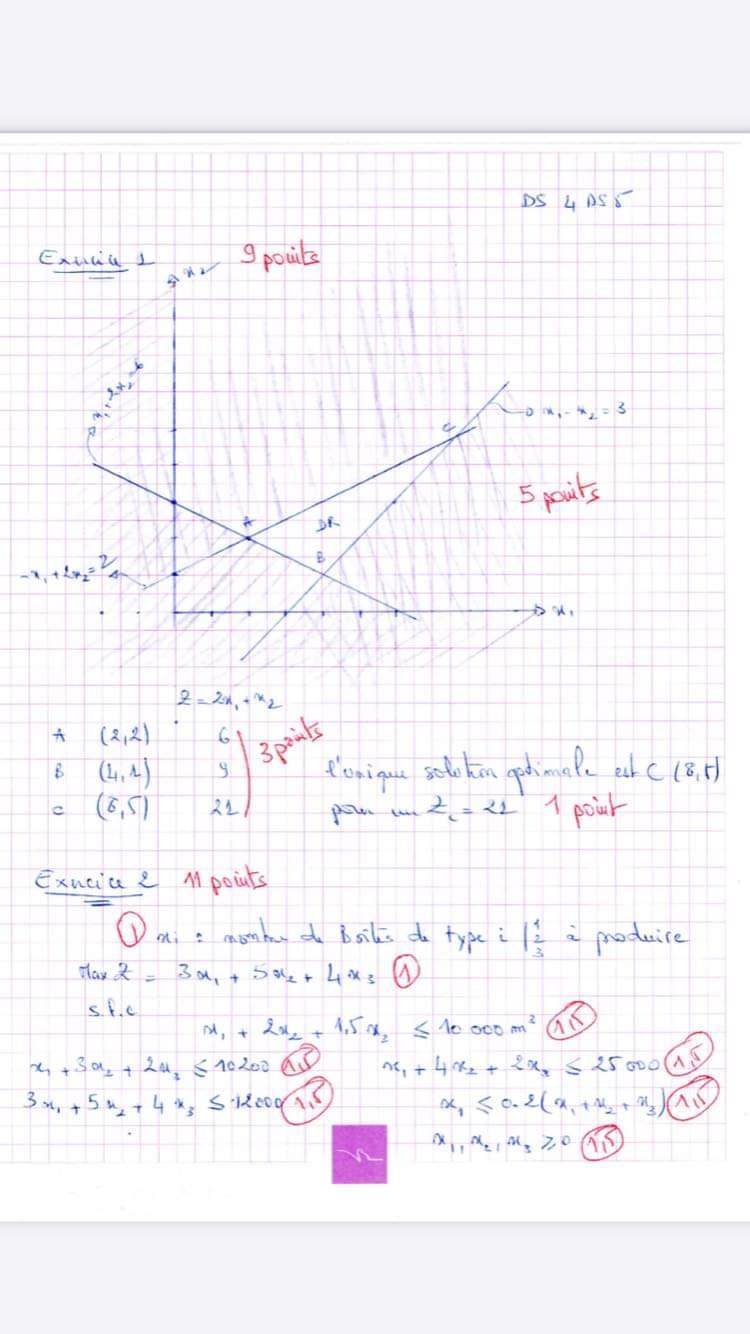 DS 4 DS5
Exercice 1 9 points
x2
x1 + 2x2 = 6
C x1 - x2 = 3
5 points
A DR
B
-x1 + 2x2 = 2
x1
Z = 2x1 + x2
A (2,2) 6
B (4,1) 9
C (8,5) 21
3 points
l'unique solution optimale est C (8,5)
pour un Z = 21 1 point
Exercice 2 11 points
1 xi : nombre de Boîtes de type i 1 2 3 à produire
Max Z = 3x1 + 5x2 + 4x3 1
s.l.c
x1 + 2x2 + 1,5x2 ≤ 10 000 m² 1,5
x1 + 3x2 + 2x3 ≤ 10200 1,5 x1 + 4x2 + 2x3 ≤ 25000 1,5
3x1 + 5x2 + 4x3 ≤ 12000 1,5 x1 ≤ 0.2(x1 + x2 + x3) 1,5
x1, x2, x3 ≥ 0 1,5